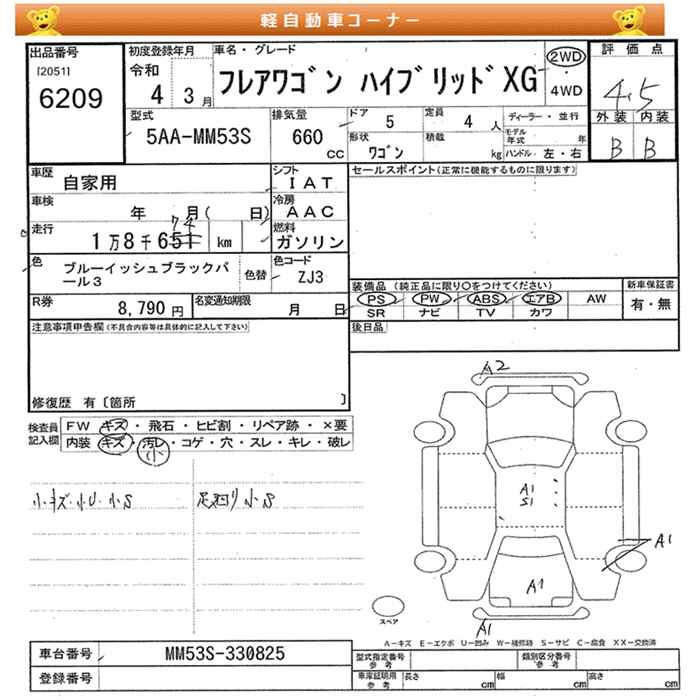 軽自動車コーナー
出品番号
[2051]
6209
初度登録年月
令和
4 3月
車名・グレード
フレアワゴン ハイブリッド XG
2WD
・
4WD
評価点
4.5
外装 内装
B B
型式
5AA-MM53S
排気量
660
CC
ドア
5
定員
4 人
形状
ワゴン
積載
kg
ディーラー・並行
モデル年式 年
ハンドル 左・右
車歴
自家用
シフト
IAT
車検
年 月( 日)
冷房
AAC
走行
1万8千651 km
74
燃料
ガソリン
色
ブルーイッシュブラックパール3
色替
色コード
ZJ3
R券
8,790 円
名変通知期限
月 日
セールスポイント(正常に機能するものに限ります)
装備品 (純正品に限り○をつけてください)
新車保証書
PS PW ABS エアB AW
有・無
SR ナビ TV カワ
後日品
注意事項申告欄(不具合内容等は具体的に記入して下さい)
修復歴 有〔箇所 〕
検査員記入欄
FW キズ・飛石・ヒビ割・リペア跡・×要
内装 キズ・汚レ・コゲ・穴・スレ・キレ・破レ
小
小キズ・小U・小S
足廻り小S
A2
A1
S1
A1
A1
A1
スペア
A-キズ E-エクボ U-凹み W-補修跡 S-サビ C-腐食 XX-交換済
車台番号
MM53S-330825
登録番号
型式指定番号
参考
類別区分番号
参考
車庫証明用
参考
長さ cm
幅 cm
高さ cm